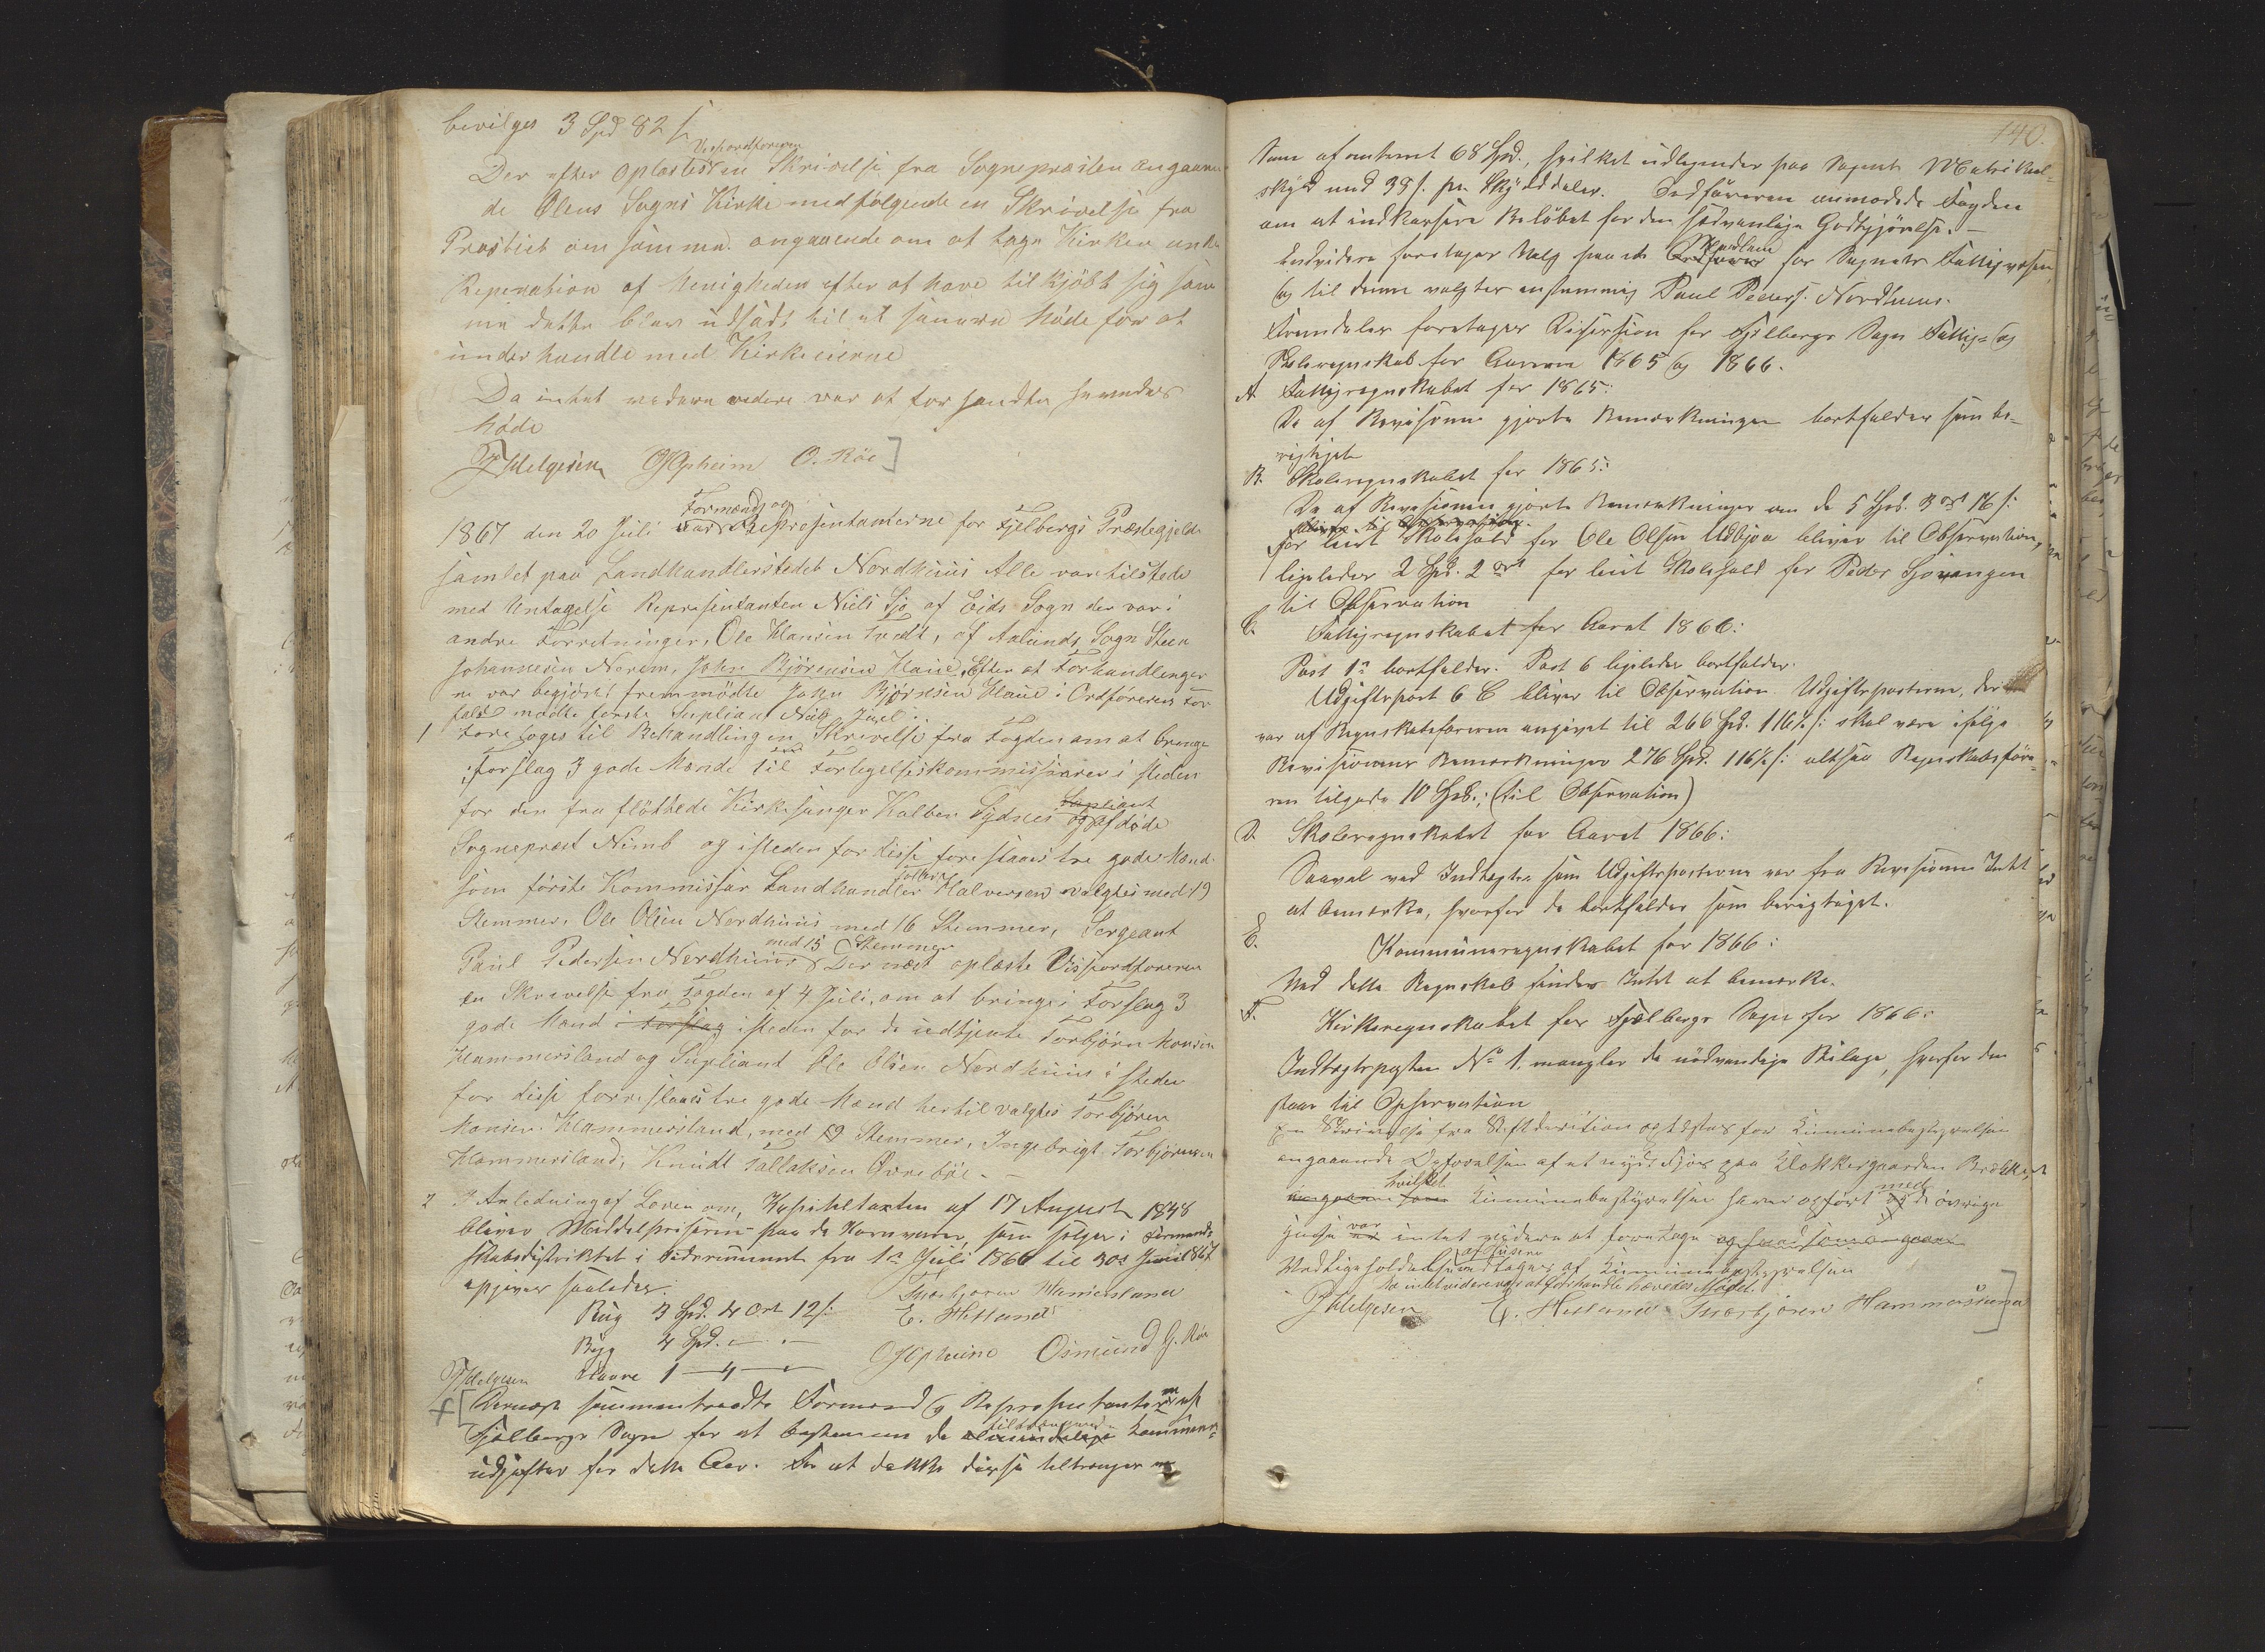 bevilges 3 Spd 82 s
Visordføreren
Der efter oplæstes en Skrivelse fra Sognepræsten angaaen
de Ølens Sogns Kirke medfølgende en Skrivelse fra
Prostiet om samme angaaende om at tage Kirken under
Reperation af Menigheden efter at have til kjöbt sig sam
me dette blev udsadt til et senere Möde for at
underhandle med Kirkeeierne
Da intet videre videre var at forhandte hævedes
Möde
J Helgesen O Opheim O. Röe
Formænd og
1867 den 20 Juli var Representanterne for Fjelbergs Præstegjeld
samlet paa Landhandlerstedet Nordhuus Alle var tilstede
med Untagelse Representanten Niels Sjo af Eids Sogn der var i
andre Forretninger, Ole Hansen Tvedt, af Aalunds Sogn Steen
Johannesen Norem, John Björensen Haue. Efter at Forhandlinger
ne var begjönt fremmödte John Björnsen Haue i Ordförerens For
fald mödte første Supliant Niels Juel
1 Foretoges til Behandling en Skrivelse fra Fogden om at bringe
i Forslag 3 gode Mænde til Forlegelseskommissærer i steden
for den fra flöttede Kirkesanger Halben Sydnes og Supliant afdöde
Sognepræst Nimb og isteden for disse fore slaaes tre gode Mænd
som förste Kommissær Landhandler Halversen valgtes med 19
Stemmer, Ole Olsen Nordhuus med 16 Stemmer, Sergeant
Paul Pedersen Nordhuus med 15 Stemmer Der næst oplæste Visordföreren
en Skrivelse fra Fogden af 4 Juli, om at bringe i Forslag 3
gode Mænd i Forslag isteden for de udtjente Torbjörn Monsen
Hammersland og Supliant Ole Olsen Nordhuus i steden
for disse forreslaaes tre gode Mænd hertil valgtes Torbjören
Monsen Hammersland, med 19 Stemmer, Ingebrigt Torbjörnsen
Hammersland, Knudt Tallaksen Øvrebøe.
2 I Anledning af Loven om, Kapiteltaxten af 17 August 1848
bliver Middelpriserne paa de Kornvarer, som sælges i Formænd-
skabsdistriktet i Tidsrummet fra 1ste Juli 1866 til 30te Juni 1867
opgivet saaledes:
Rug 3 Spd. 4 Ort 12 s: Torbjoren Hamersland
Byg 4 Spd. — " — E. Hetland
J Helgesen Havre 1 — 4 — " O Opheim Osmund G. Röe
Dernæst sammentraadte Formænd og Repræsentanterne af
Fjelbergs Sogn for at bestemme de almindelige tiltrængende Kommune-
udgifter for dette Aar. For at dække disse tiltrænges en
140.
Sum af omtrent 68 Spd., hvilket udlignedes paa Sognets Matrikul-
skyld med 39 s. pr. Skylddaler. Ordføreren anmodede Fogden
om at indkassere Beløbet for den sædvanlige Godtgjörelse. —
Endvidere foretoges Valg paa et Ordfører Medlem for Sognets Fattigvæsen
og til denne valgtes enstemmig Paul Peders. Nordhuus.
Fremdeles foretoges Decision for Fjelbergs Sogns Fattig- og
Skoleregnskab for Aarene 1865 og 1866.
A Fattigregnskabet for 1865:
De af Revisionen gjorte Bemærkninger bortfalder som be-
rigtiget
B. Skoleregnskabet for 1865:
De af Revisionen gjorte Bemærkninger om de 5 Spd. 3 ort 16 s:
bliver til Observation.
for leiet Skolehold for Ole Olsen Udbjoa bliver til Observation,
ligeledes 2 Spd. 2 ort for leiet Skolehold for Peder Sjovangen
til Observation
C. Fattigregnskabet for Aaret 1866:
Post 1a bortfalder. Post 6 ligeledes bortfalder.
Udgiftspost 6 C bliver til Observation. Udgiftsposterne, der
var af Regnskabsføreren angivet til 266 Spd. 116½ s: skal være ifölge
Revisionens Bemærkninger 276 Spd. 116½ s: altsaa Regnskabsföre-
ren tilgode 10 Spd.; (til Observation)
D. Skoleregnskabet for Aaret 1866:
Saavel ved Indtægts som Udgiftsposterne var fra Revisionen Intet
at bemærke, hvorfor de bortfalder som berigtiget.
E. Kommuneregnskabet for 1866:
Ved dette Regnskab findes Intet at bemærke.
F. Kirkeregnskabet for Fjelbergs Sogn for 1866:
Indtægtsposten No 1. mangler de nödvendige Bilage, hvorfor den
staar til Opservation
En Skrivelse fra Stiftdirektion oplæstes for Kummunebestyrelsen
angaaende Opførelsen af et nydt Fjøs paa Klokkergaarden Brække,
hvilket Kummunebestyrelsen haver opfört med de övrige
huse var intet videre at foretage
Vedligeholdelsen af Husene vedtages af Kummunebestyrelsen
Da intet videre var at forhandle hævedes Mödet.
J Helgesen E. Hetland Torbjören Hammersland